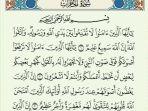 سورة الحجرات
بسم الله الرحمن الرحيم
يا أيها الذين آمنوا لا تقدموا بين يدي الله ورسوله واتقوا
الله إن الله سميع عليم يا أيها الذين آمنوا لا ترفعوا أصواتكم
فوق صوت النبي ولا تجهروا له بالقول كجهر بعضكم
لبعض أن تحبط أعمالكم وأنتم لا تشعرون إن الذين
يغضون أصواتهم عند رسول الله أولئك الذين امتحن